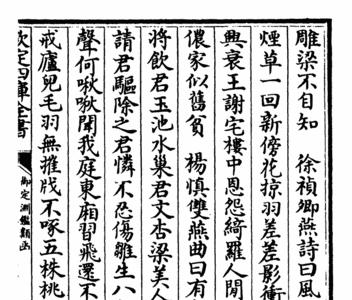 雕梁不自知　徐禎卿燕詩曰風
煙草一回新傍花掠羽差差影衝
興衰王謝宅樓中恩怨綺羅人閒
儂家似舊貧　楊慎雙燕曲曰有
將飲君玉池水巢君文杏梁美人
請君驅除之君憐不忍傷雛生八
聲何啾啾聞我庭東廂習飛還不
戒廬兒毛羽無摧戕不啄五株桃
欽定四庫全書
御定淵鑑類函